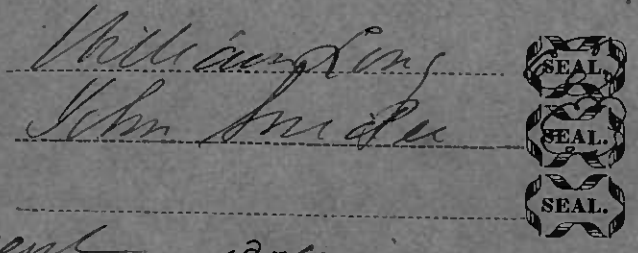 William Long SEAL.
John Snider SEAL.
SEAL.